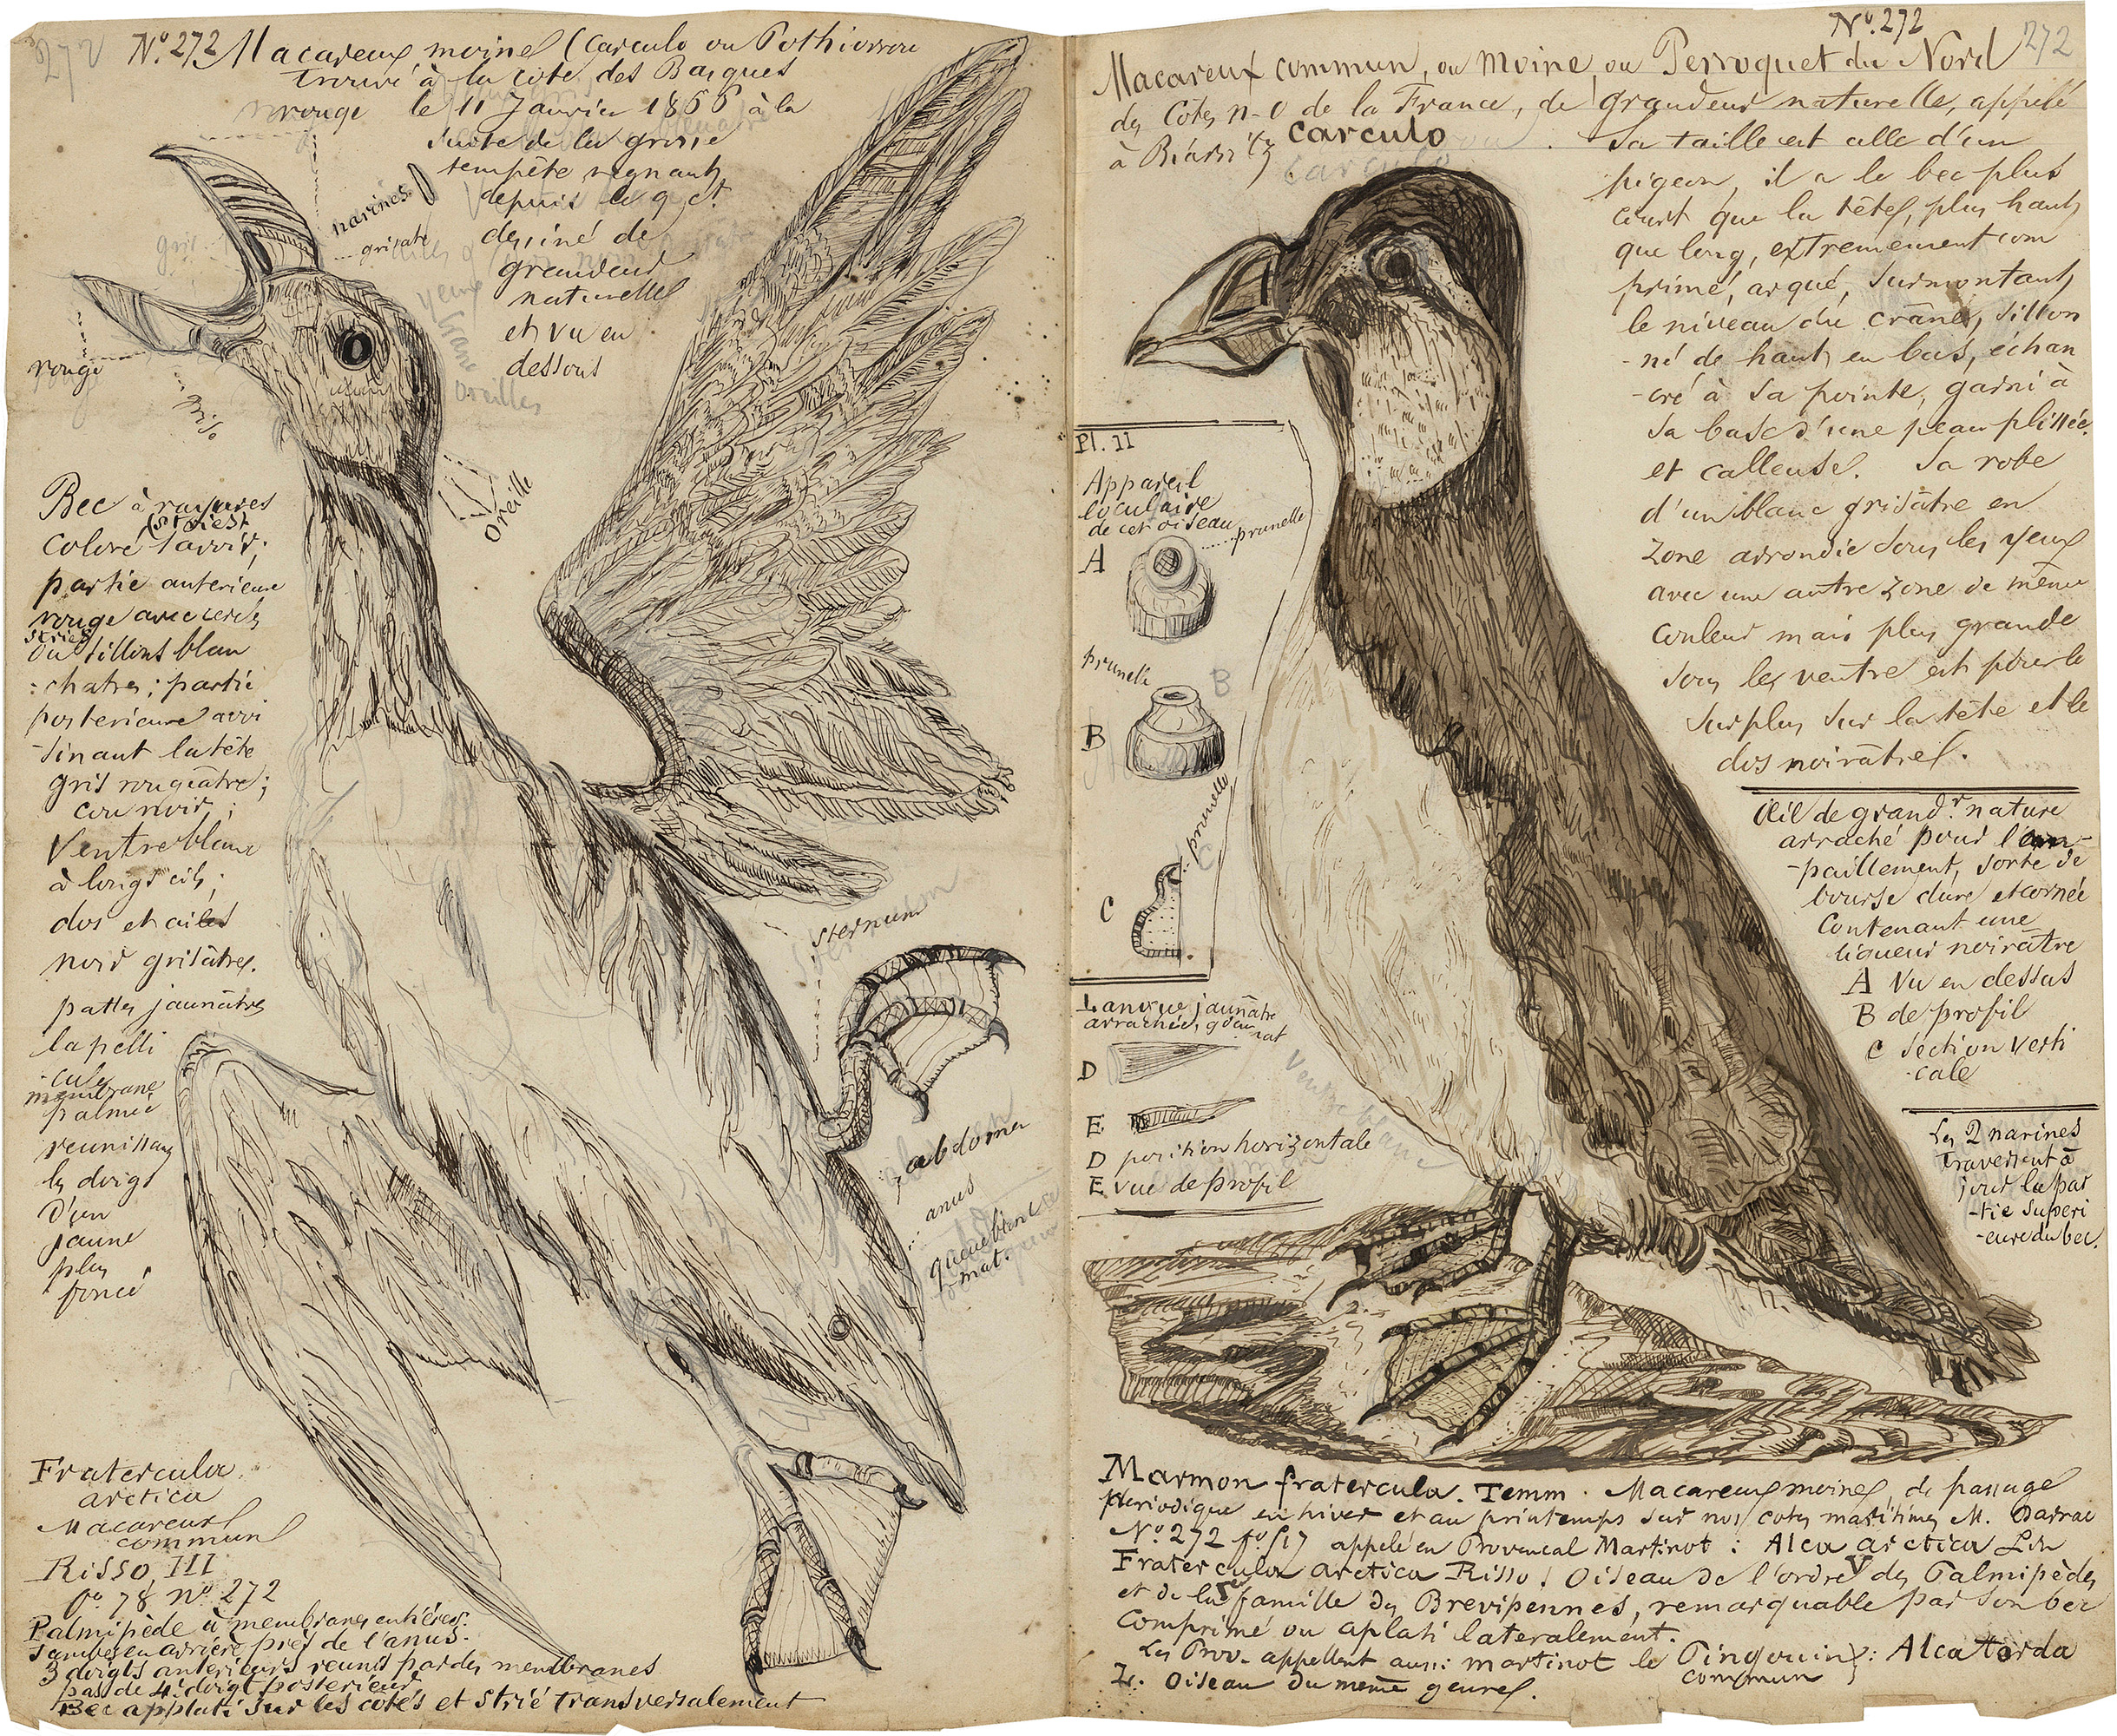 272
Nº 272 Macareux moine (Carculo ou Pothiorrou
trouvé à la côte des Basques
rouge le 11 Janvier 1866 à la
suite de la grosse
tempête régnant
depuis le 9 ct
dessiné de
grandeur
naturelle
et vu en
dessous
narines
grisatre
gris
yeux
oreilles
rouge
gris
oreille
Bec à rayures
(stries)
coloré
partie anterieure
rouge avec cercles
stries
ou sillons blan
-chatres; partie
posterieure avoi
-sinant la tête
gris rougeâtre;
cou noir;
Ventre blanc
à longs cils;
dos et ailes
noir grisâtres.
pattes jaunâtres
la pelli
-cule
membrane
palmée
reunissant
les doigts
D'un
jaune
plus
foncé
sternum
abdomen
anus
queue blanc
mat.
Fratercula
arctica
Macareux
commun
Risso III
fº 78 Nº 272
Palmipède à membranes entières.
Jambes en arrière près de l'anus.
3 doigts anterieurs reunis par des membranes
pas de 4e doigt posterieur
Bec applati sur les cotés et strié transversalement
Nº 272
272
Macareux commun, ou moine, ou Perroquet du Nord
des Côtes n-o de la France, de grandeur naturelle, appelé
à Biarritz Carculo
Sa taille est celle d'un
pigeon, il a le bec plus
court que la tête, plus haut
que long, extremement com
primé, arqué, surmontant
le niveau du crâne, sillon
-né de haut en bas, échan
-cré à sa pointe, garni à
sa base d'une peau plissée
et calleuse. Sa robe
d'un blanc grisâtre en
zone arrondie sous les yeux
avec une autre zone de même
couleur mais plus grande
sous le ventre est pour le
surplus sur la tête et le
dos noirâtre.
Pl. 11
Appareil
oculaire
de cet oiseau
prunelle
A
prunelle
B
B
prunelle
C
C
Langue jaunâtre
arrachée, gdeur
nat
D
E
D position horizontale
E vue de profil
Ventre blanc
Œil de grandr nature
arraché pour l'em-
-paillement, sorte de
bourse dure et cornée
contenant une
liqueur noirâtre
A Vu en dessus
B de profil
C Section verti
-cale
Les 2 narines
traversent à
jour la par
-tie superi
-eure du bec.
Marmon fratercula. Temm. Macareux moine, de passage
périodique en hiver et au printemps sur nos côtes maritimes M. Darrac
Nº 272 fº 517 appelé en Provencal Martinot: Alca arctica Lin
Fratercula arctica Risso! Oiseau de l'ordre V des Palmipèdes
et de la famille des Brevipennes, remarquable par son bec
comprimé ou aplati lateralement.
Les Prov. appellent aussi martinot le Pingouin commun: Alca torda
L. Oiseau du même genre.